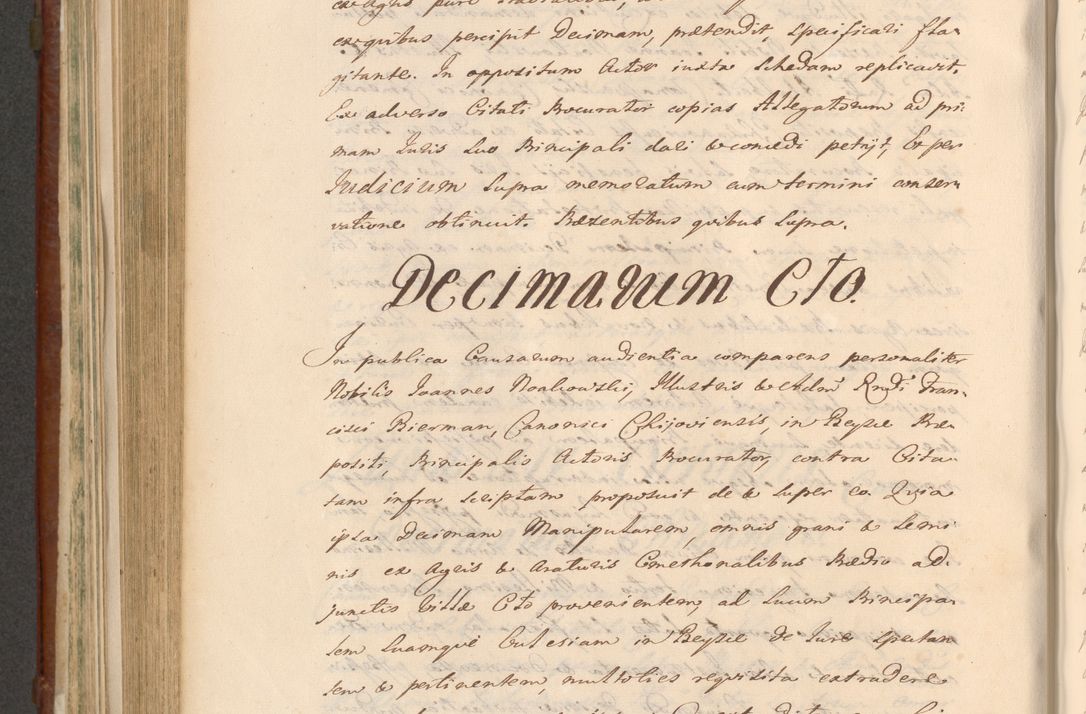 ex quibus percipit Decimam, prætendit specificari fla-
gitante. In oppositum Actor iuxta Schedam replicavit.
Ex adverso Citati Procurator copias Allegatorum ad pri:
mam Iuris Suo Principali dari & concedi petijt, Et per
Iudicium Supra memoratum cum termini conser-
vatione obtinuit. Præsentibus quibus Supra.
Decimarum Cto.
In publica Causarum audientia comparens personaliter
Nobilis Joannes Noakowski, Illustris & Adm Rndi Fran-
cisci Bierman, Canonici Kijoviensis, in Beysce Præ-
positi, Principalis Actoris Procurator, contra Cita-
tam infra scriptam, proposuit de & super eo. Quia
ipsa Decimam Manipularem, omnis grani & Semi
nis ex Agris & Araturis Cmethonalibus Prædio ad-
junctis Villæ Cto provenientem, ad Suum Principa-
lem Suamque Ecclesiam in Beysce de Iure Spectan
tem & pertinentem, multoties requisita extradere